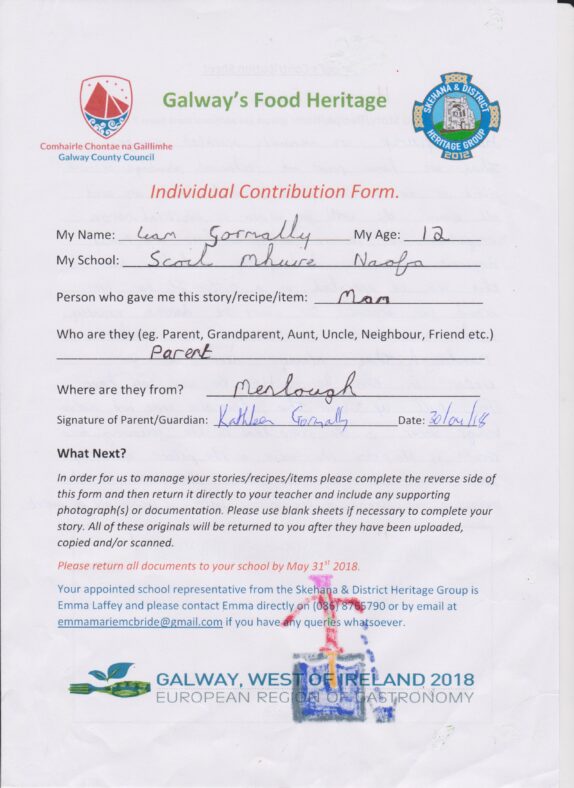 Galway's Food Heritage
SKEHANA & DISTRICT
HERITAGE GROUP
2012
Comhairle Chontae na Gaillimhe
Galway County Council
Individual Contribution Form.
My Name: Liam Gormally My Age: 12
My School: Scoil Mhuire Naofa
Person who gave me this story/recipe/item: Mam
Who are they (eg. Parent, Grandparent, Aunt, Uncle, Neighbour, Friend etc.)
Parent
Where are they from? Menlough
Signature of Parent/Guardian: Kathleen Gormally Date: 30/04/18
What Next?
In order for us to manage your stories/recipes/items please complete the reverse side
of this form and then return it directly to your teacher and include any supporting
photograph(s) or documentation. Please use blank sheets if necessary to complete your
story. All of these originals will be returned to you after they have been uploaded,
copied and/or scanned.
Please return all documents to your school by May 31st 2018.
Your appointed school representative from the Skehana & District Heritage Group is
Emma Laffey and please contact Emma directly on (086) 8765790 or by email at
emmamariemcbride@gmail.com if you have any queries whatsoever.
GALWAY, WEST OF IRELAND 2018
EUROPEAN REGION OF GASTRONOMY